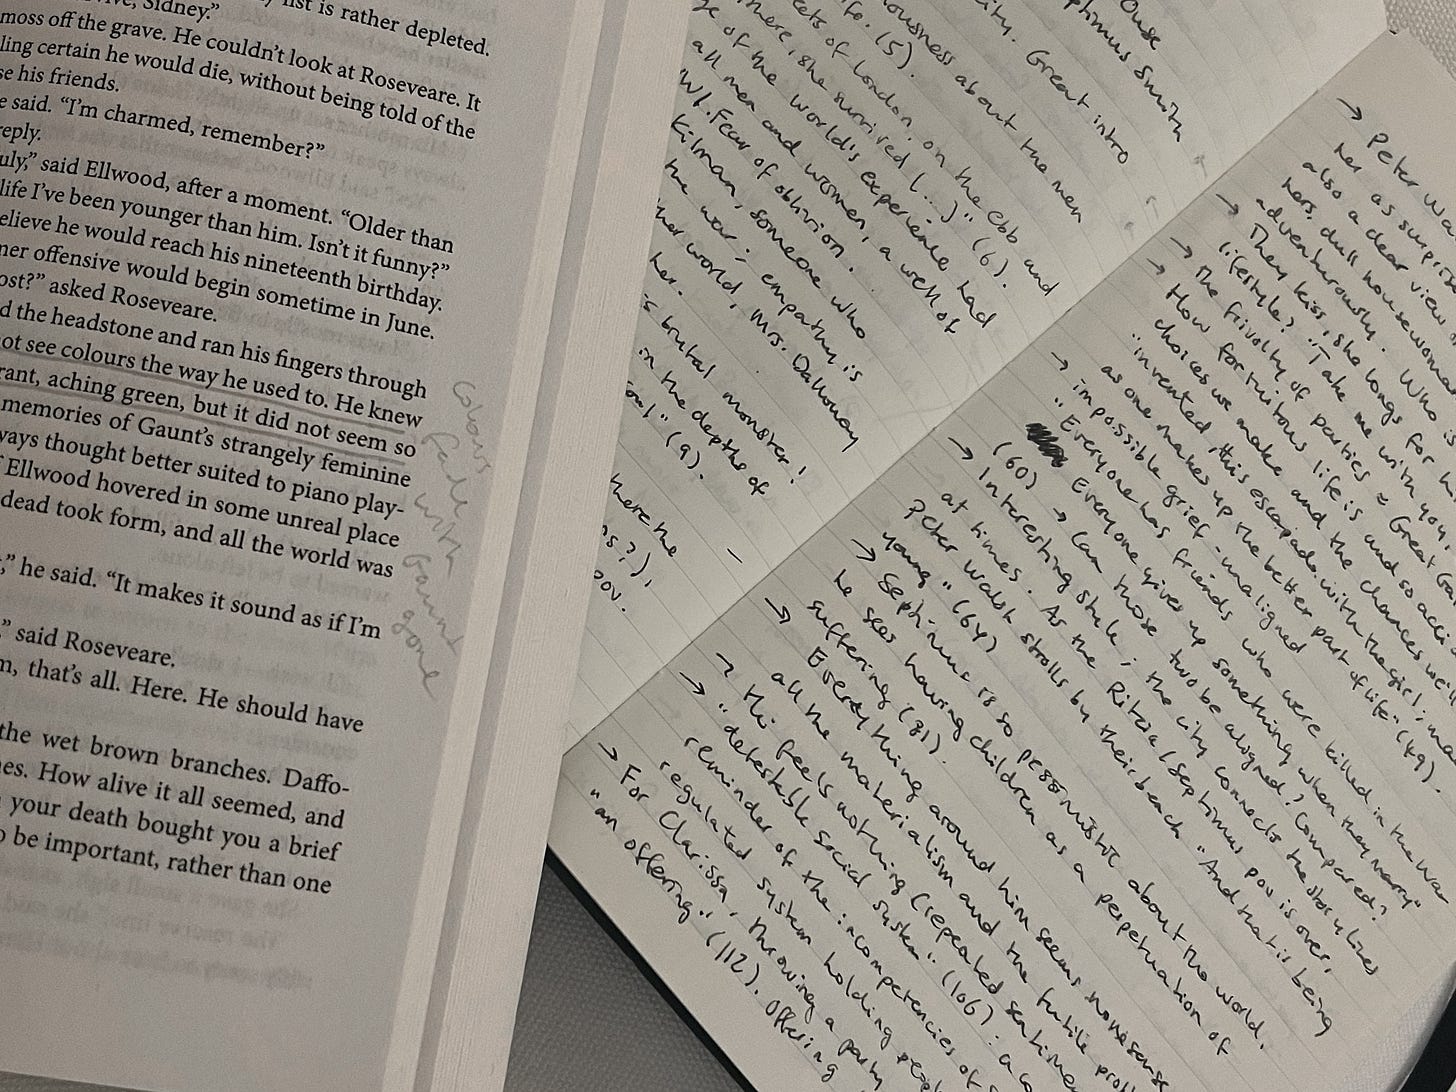 Sidney.”
list is rather depleted.
moss off the grave. He couldn’t look at Roseveare. It
ling certain he would die, without being told of the
se his friends.
e said. “I’m charmed, remember?”
reply.
uly,” said Ellwood, after a moment. “Older than
life I’ve been younger than him. Isn’t it funny?”
elieve he would reach his nineteenth birthday.
mer offensive would begin sometime in June.
ost?” asked Roseveare.
d the headstone and ran his fingers through
ot see colours the way he used to. He knew
rant, aching green, but it did not seem so
memories of Gaunt’s strangely feminine
ways thought better suited to piano play-
Ellwood hovered in some unreal place
dead took form, and all the world was
,” he said. “It makes it sound as if I’m
,” said Roseveare.
m, that’s all. Here. He should have
the wet brown branches. Daffo-
es. How alive it all seemed, and
your death bought you a brief
o be important, rather than one
colours
fade
with
Gaunt
gone
Ouse
Septimus Smith
city. Great intro
about the men
life. (5).
streets of London, on the ebb and
there, she survived (...)" (6).
of the world's experience had
all men and women, a well of
WI. Fear of oblivion.
Kilman, someone who
the war; empathy is
her world, Mrs. Dalloway
her.
is brutal monster!
in the depths of
soul" (9).
there the
ns?),
pov.
→ Peter Wa
her as surpris
also a clear view o
hers, dull housewoman
adventurously. Who is
→ They kiss, she longs for hi
lifestyle? "Take me with you,
→ The frivolity of parties ≈ Great Ga
→ How fortuitous life is and so acci
choices we make and the chances we'll
"invented, this escapade with the girl; ma
as one makes up the better part of life" (49).
→ impossible grief - maligned
"Everyone has friends who were killed in the War
Everyone gives up something when they marry"
(60) → Can those two be aligned? Compared?
→ Interesting style; the city connects the story lines
at times. As the Rezia/Septimus pov is over,
Peter Walsh strolls by their beach "And that is being
young" (64)
→ Septimus is so pessimistic about the world.
he sees having children as a perpetuation of
suffering (81).
→ Everything around him seems nonsense
all the materialism and the futile prob
→ He feels nothing (repeated sentimen
→ "detestable social system" (106): a co
reminder of the incompetencies of
regulated system holding peopl
→ For Clarissa, throwing a party
"an offering" (112). Offering